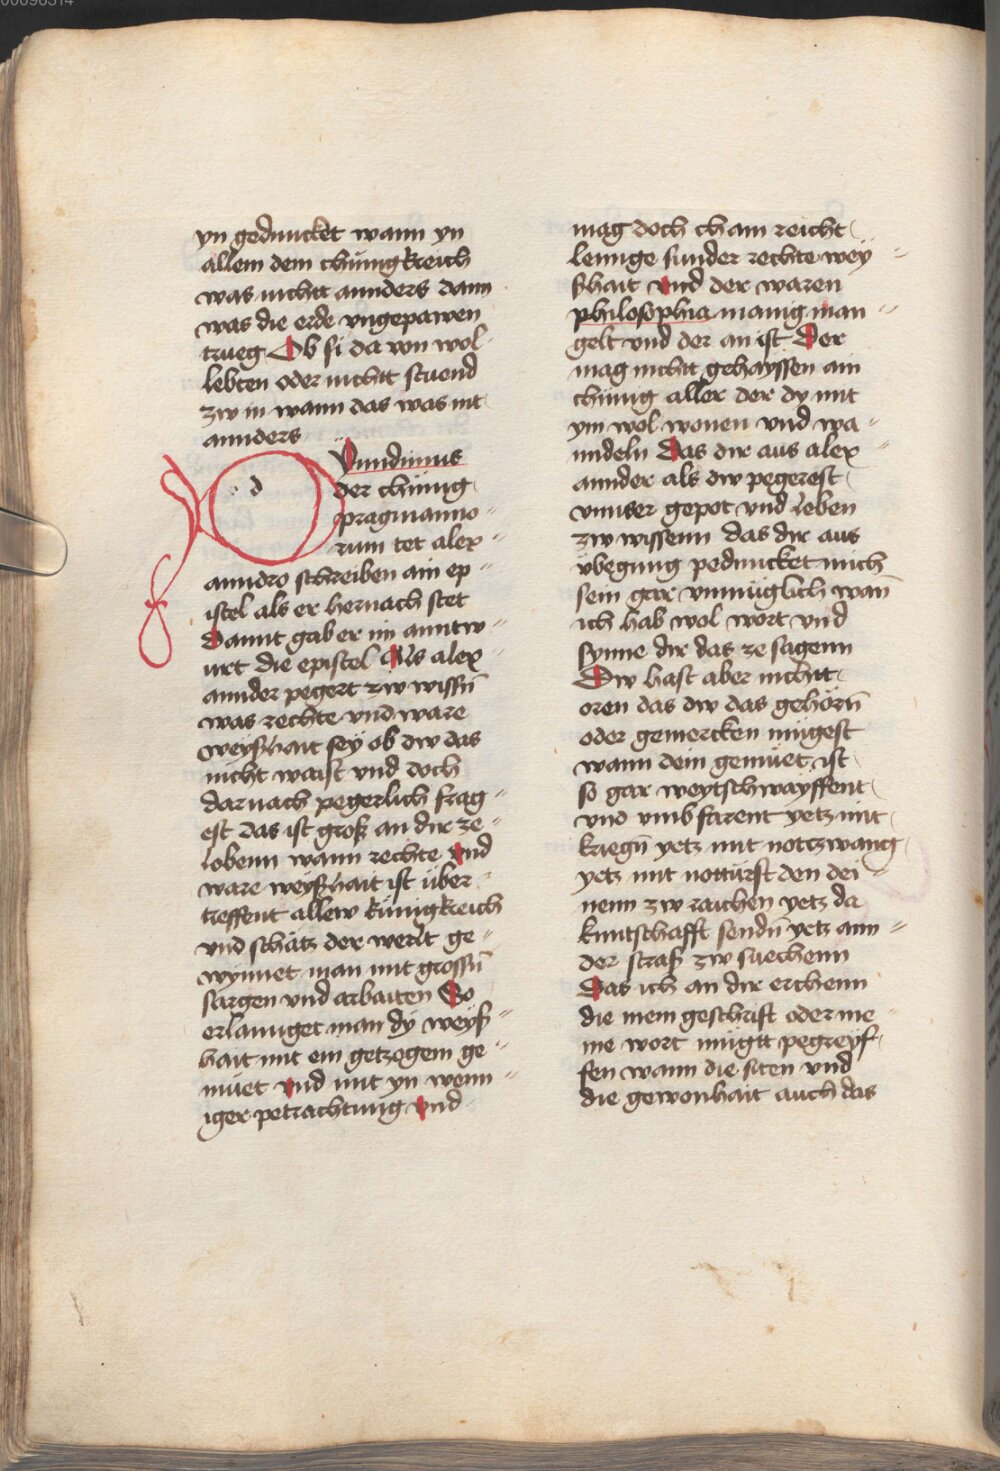 yn geduncket wann yn
allem dem chünigkreich
was nichtt annders dann
was die erde vngepawen
trueg Ob si da von wol
lebten oder nichtt stuend
zw in wann das was nit
annders
Dundimus
der chünig
pragmanno-
rum tet alex-
anndro schreiben ain ep-
istel als er hernach stet
Damit gab er im anntw-
urt die epistel Als alex
annder pegert zw wissn̄
was rechte vnd ware
weyszhait sey ob dw das
nicht waist vnd doch
darnach pegerlich frag-
est das ist grosz an dir ze-
lobenn wann rechte vnd
ware weyszhait ist über
treffent allew künigkreich
vnd schätz der werlt ge-
wynnet man mit grossn̄
sargen vnd arbaiten So
erlannget man dy weysz-
hait mit ein getzogem ge-
müet vnd mit yn wenn-
iger petrachtung vnd
mag doch cham reicht
lennge sunder rechte wey-
szhait vnd der waren
philosophia manig man-
gelt vnd der an ist Der
mag nichtt gehayssen ain
chünig aller der dy mit
ym wol wonen vnd wa-
nndeln Das dir aus alex
annder als dw pegerest
vnnser gepot vnd leben
zw wissenn das dir aus
übegung peduncket mich
sein gar vnmüglich wan̄
ich hab wol wort vnd
synne dir das ze sagenn
Dw hast aber nichtt
oren das dw das gehörn̄
oder gemercken mügest
wann dein gemüet ist
so gar weytschwayffent
vnd vmbfarent yetz mit
kriegn̄ yetz mit nottzwang
yetz mit notturft den dei-
nenn zw raichen yetz da
kuntschafft sendn̄ yetz ann-
der strasz zw suechenn
Das ich an dir erchenn
die mein geschrift oder me-
ine wort mügtt pegreyf-
fen wann die siten vnd
die gewonhait auch das